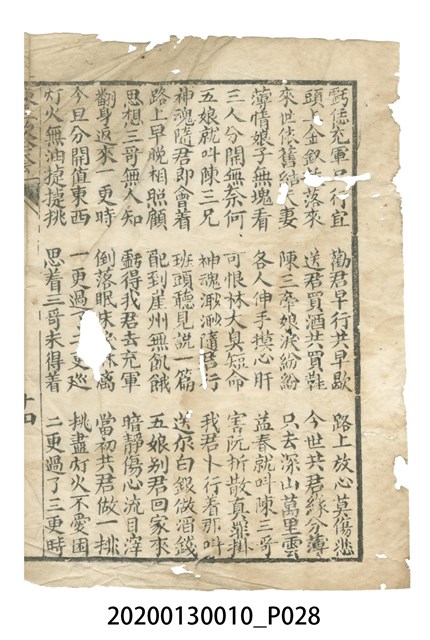 虧恁充軍只行宜 勸君早行共早歇 路上放心莫傷悲
頭上金釵落來 送君買酒共買鞋 今世共君緣分薄
來世依舊結妻 陳三爺娘淚紛紛 只去深山萬里雲
薄情娘子無塊看 各人伸手摸心肝 益春就叫陳三哥
三人分開無奈何 可恨林大真短命 害阮折散真掛
五娘就叫陳三兄 神魂渺渺隨君行 我君卜行看那叫
神魂隨君即會着 班頭聽見說一篇 送尔白銀做酒錢
路上早晚相照顧 配到崖州無飢餓 五娘別君回家來
思想三哥無人知 虧得我君去充軍 暗靜傷心流目滓
翻身返來一更時 倒落眠床 當初共君做一排
今旦分開值東西 一更過了更巡 挑盡灯火不愛困
灯火無油捷捷挑 思着三哥未得着 二更過了三更時
20200130010_P028